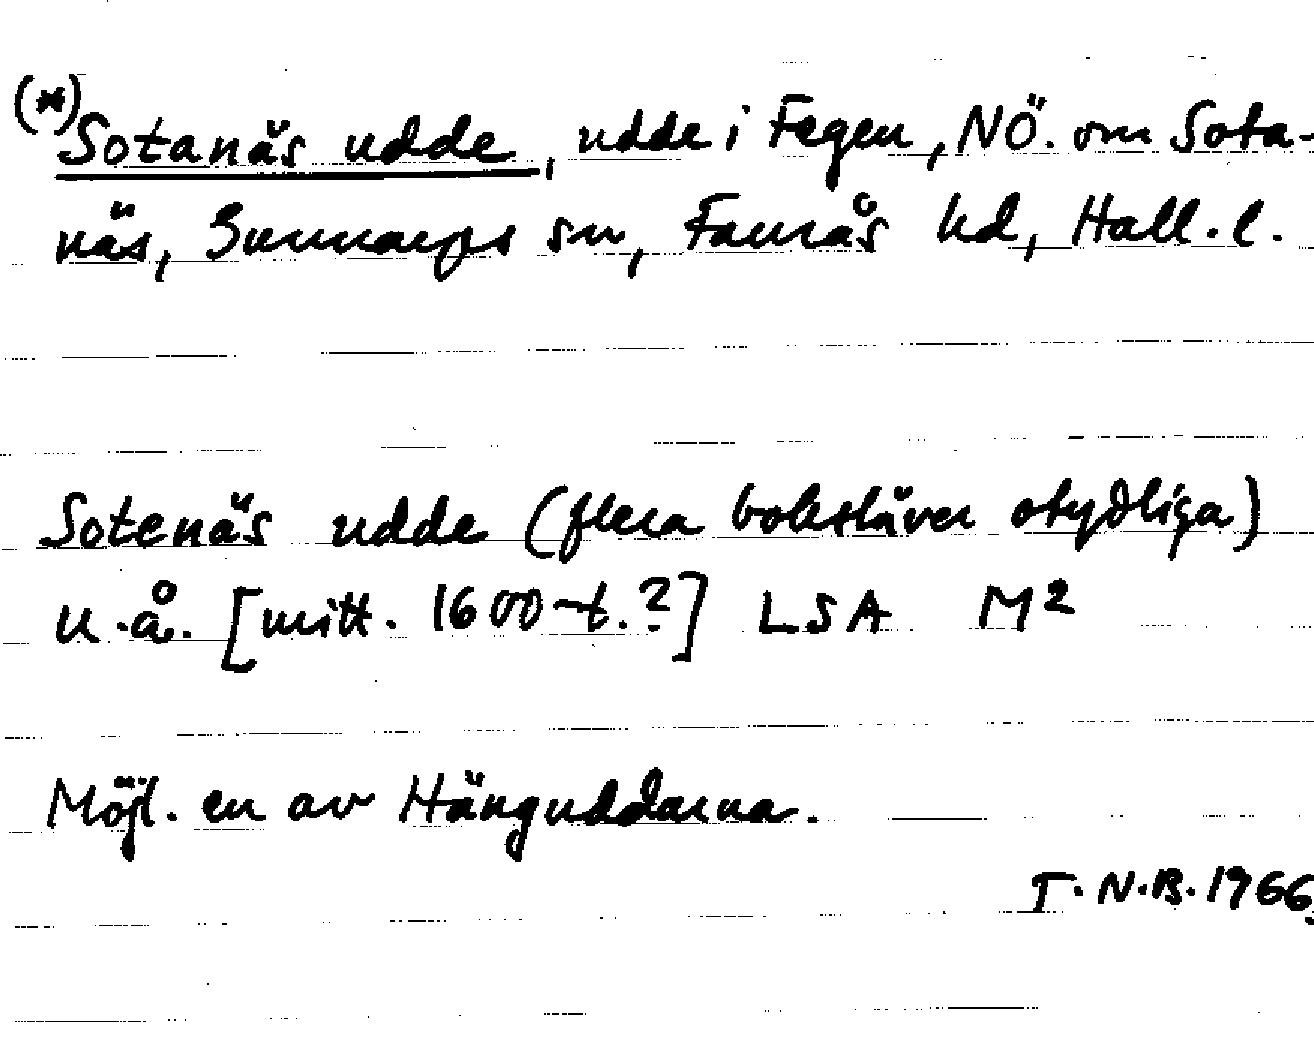 (*) Sotanäs udde, udde i Fegen, NÖ. om Sota-
näs, Gunnarps sn, Faurås hd, Hall. l.
Sotenäs udde (flera bokstäver otydliga)
u.å. [mitt. 1600-t.?] LSA M²
Möjl. en av Hänguddarna.
T.N.B. 1966